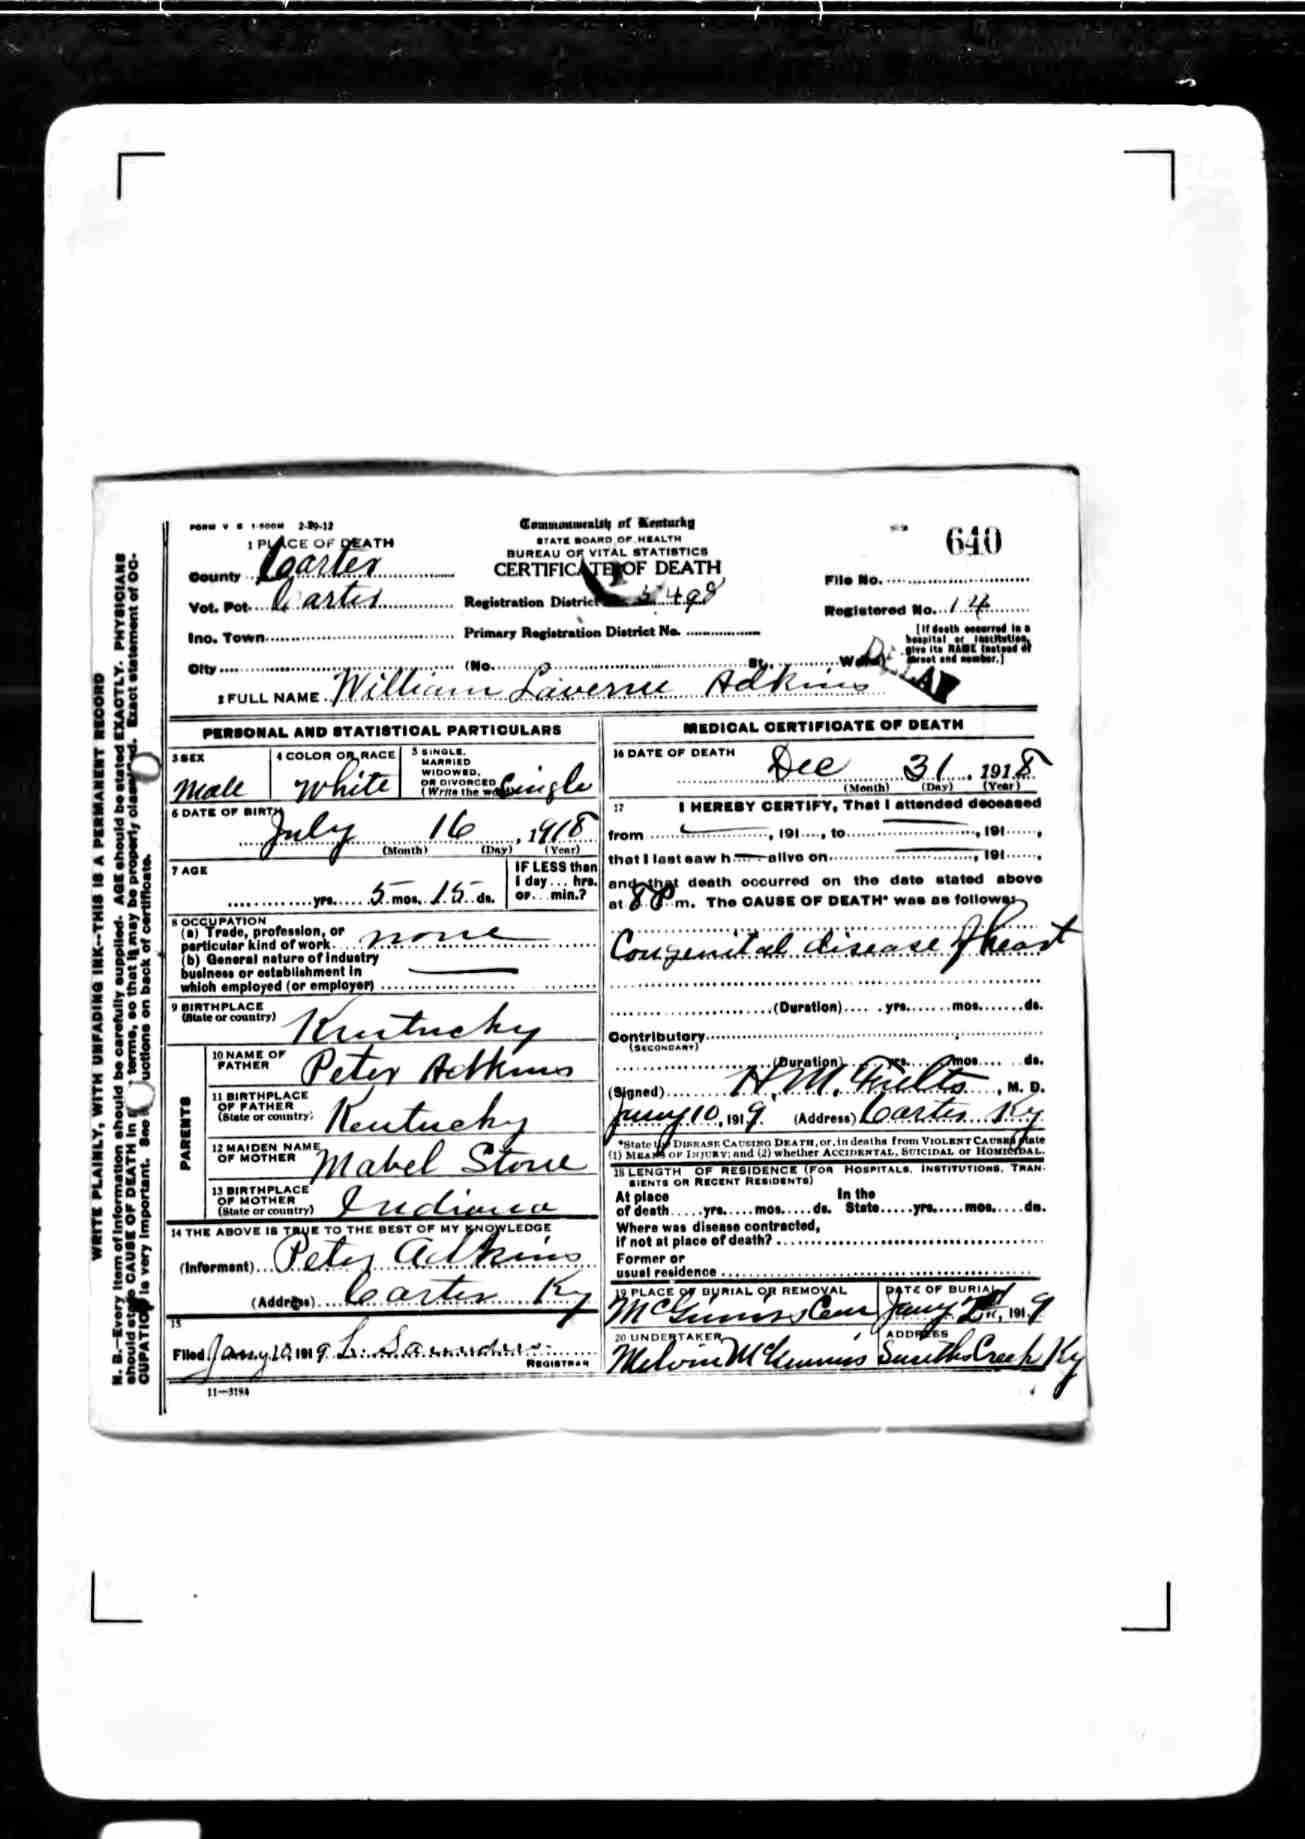 FORM V S 1-500M 2-29-12
Commonwealth of Kentucky
640
1 PLACE OF DEATH
STATE BOARD OF HEALTH
BUREAU OF VITAL STATISTICS
CERTIFICATE OF DEATH
County Carter
File No.
Vot. Pct. Carter
Registration District 5498
Registered No. 14
Ino. Town
Primary Registration District No.
[If death occurred in a hospital or institution, give its NAME instead of street and number.]
City (No. St., Ward)
2 FULL NAME William Laverne Adkins
PERSONAL AND STATISTICAL PARTICULARS
3 SEX
Male
4 COLOR OR RACE
White
5 SINGLE, MARRIED WIDOWED, OR DIVORCED (Write the word)
Single
6 DATE OF BIRTH
July 16, 1918
(Month) (Day) (Year)
7 AGE
yrs. 5 mos. 15 ds.
IF LESS than 1 day ... hrs. or ... min.?
8 OCCUPATION
(a) Trade, profession, or
particular kind of work none
(b) General nature of industry
business or establishment in
which employed (or employer)
9 BIRTHPLACE
(State or country) Kentucky
PARENTS
10 NAME OF FATHER Peter Adkins
11 BIRTHPLACE OF FATHER (State or country) Kentucky
12 MAIDEN NAME OF MOTHER Mabel Stone
13 BIRTHPLACE OF MOTHER (State or country) Indiana
14 THE ABOVE IS TRUE TO THE BEST OF MY KNOWLEDGE
(Informant) Peter Adkins
(Address) Carter Ky
15
Filed Jany 10, 1919 L. Saunders
REGISTRAR
11-3194
MEDICAL CERTIFICATE OF DEATH
16 DATE OF DEATH
Dec 31, 1918
(Month) (Day) (Year)
17 I HEREBY CERTIFY, That I attended deceased
from , 191 , to , 191 ,
that I last saw h alive on , 191 ,
and that death occurred on the date stated above
at 8 P m. The CAUSE OF DEATH* was as follows:
Congenital disease of heart
(Duration) yrs. mos. ds.
Contributory
(SECONDARY)
(Duration) yrs. mos. ds.
(Signed) H. M. , M. D.
Jany 10, 1919. (Address) Carter Ky
*State the DISEASE CAUSING DEATH, or, in deaths from VIOLENT CAUSES state
(1) MEANS OF INJURY; and (2) whether ACCIDENTAL, SUICIDAL or HOMICIDAL.
18 LENGTH OF RESIDENCE (FOR HOSPITALS, INSTITUTIONS, TRAN-
SIENTS OR RECENT RESIDENTS)
At place of death yrs. mos. ds. In the State yrs. mos. ds.
Where was disease contracted,
if not at place of death?
Former or
usual residence
19 PLACE OF BURIAL OR REMOVAL
McGinnis Cem
DATE OF BURIAL
Jany 2nd, 1919
20 UNDERTAKER
Melvin McGinnis
ADDRESS
Smiths Creek Ky
WRITE PLAINLY, WITH UNFADING INK--THIS IS A PERMANENT RECORD
N. B.--Every item of information should be carefully supplied. AGE should be stated EXACTLY. PHYSICIANS
should state CAUSE OF DEATH in terms, so that it may be properly classified. Exact statement of OC-
CUPATION is very important. See instructions on back of certificate.